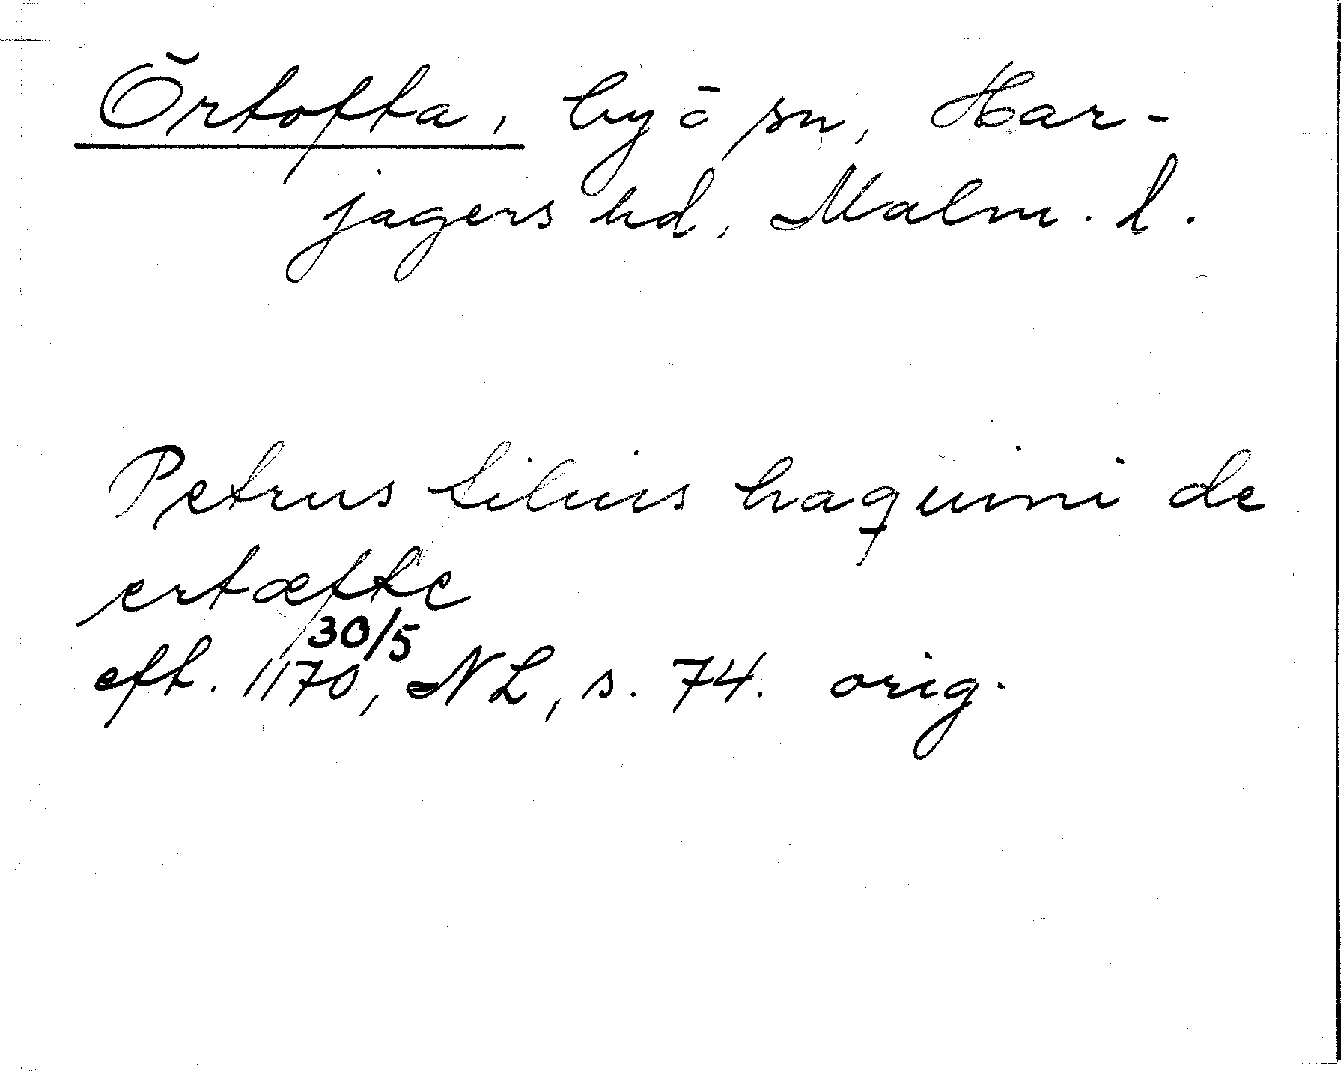 Örtofta, by o sn, Har-
jagers hd, Malm. l.
Petrus filius haquini de
ertæfte
30/5
eft. 1170, NL, s. 74. orig.